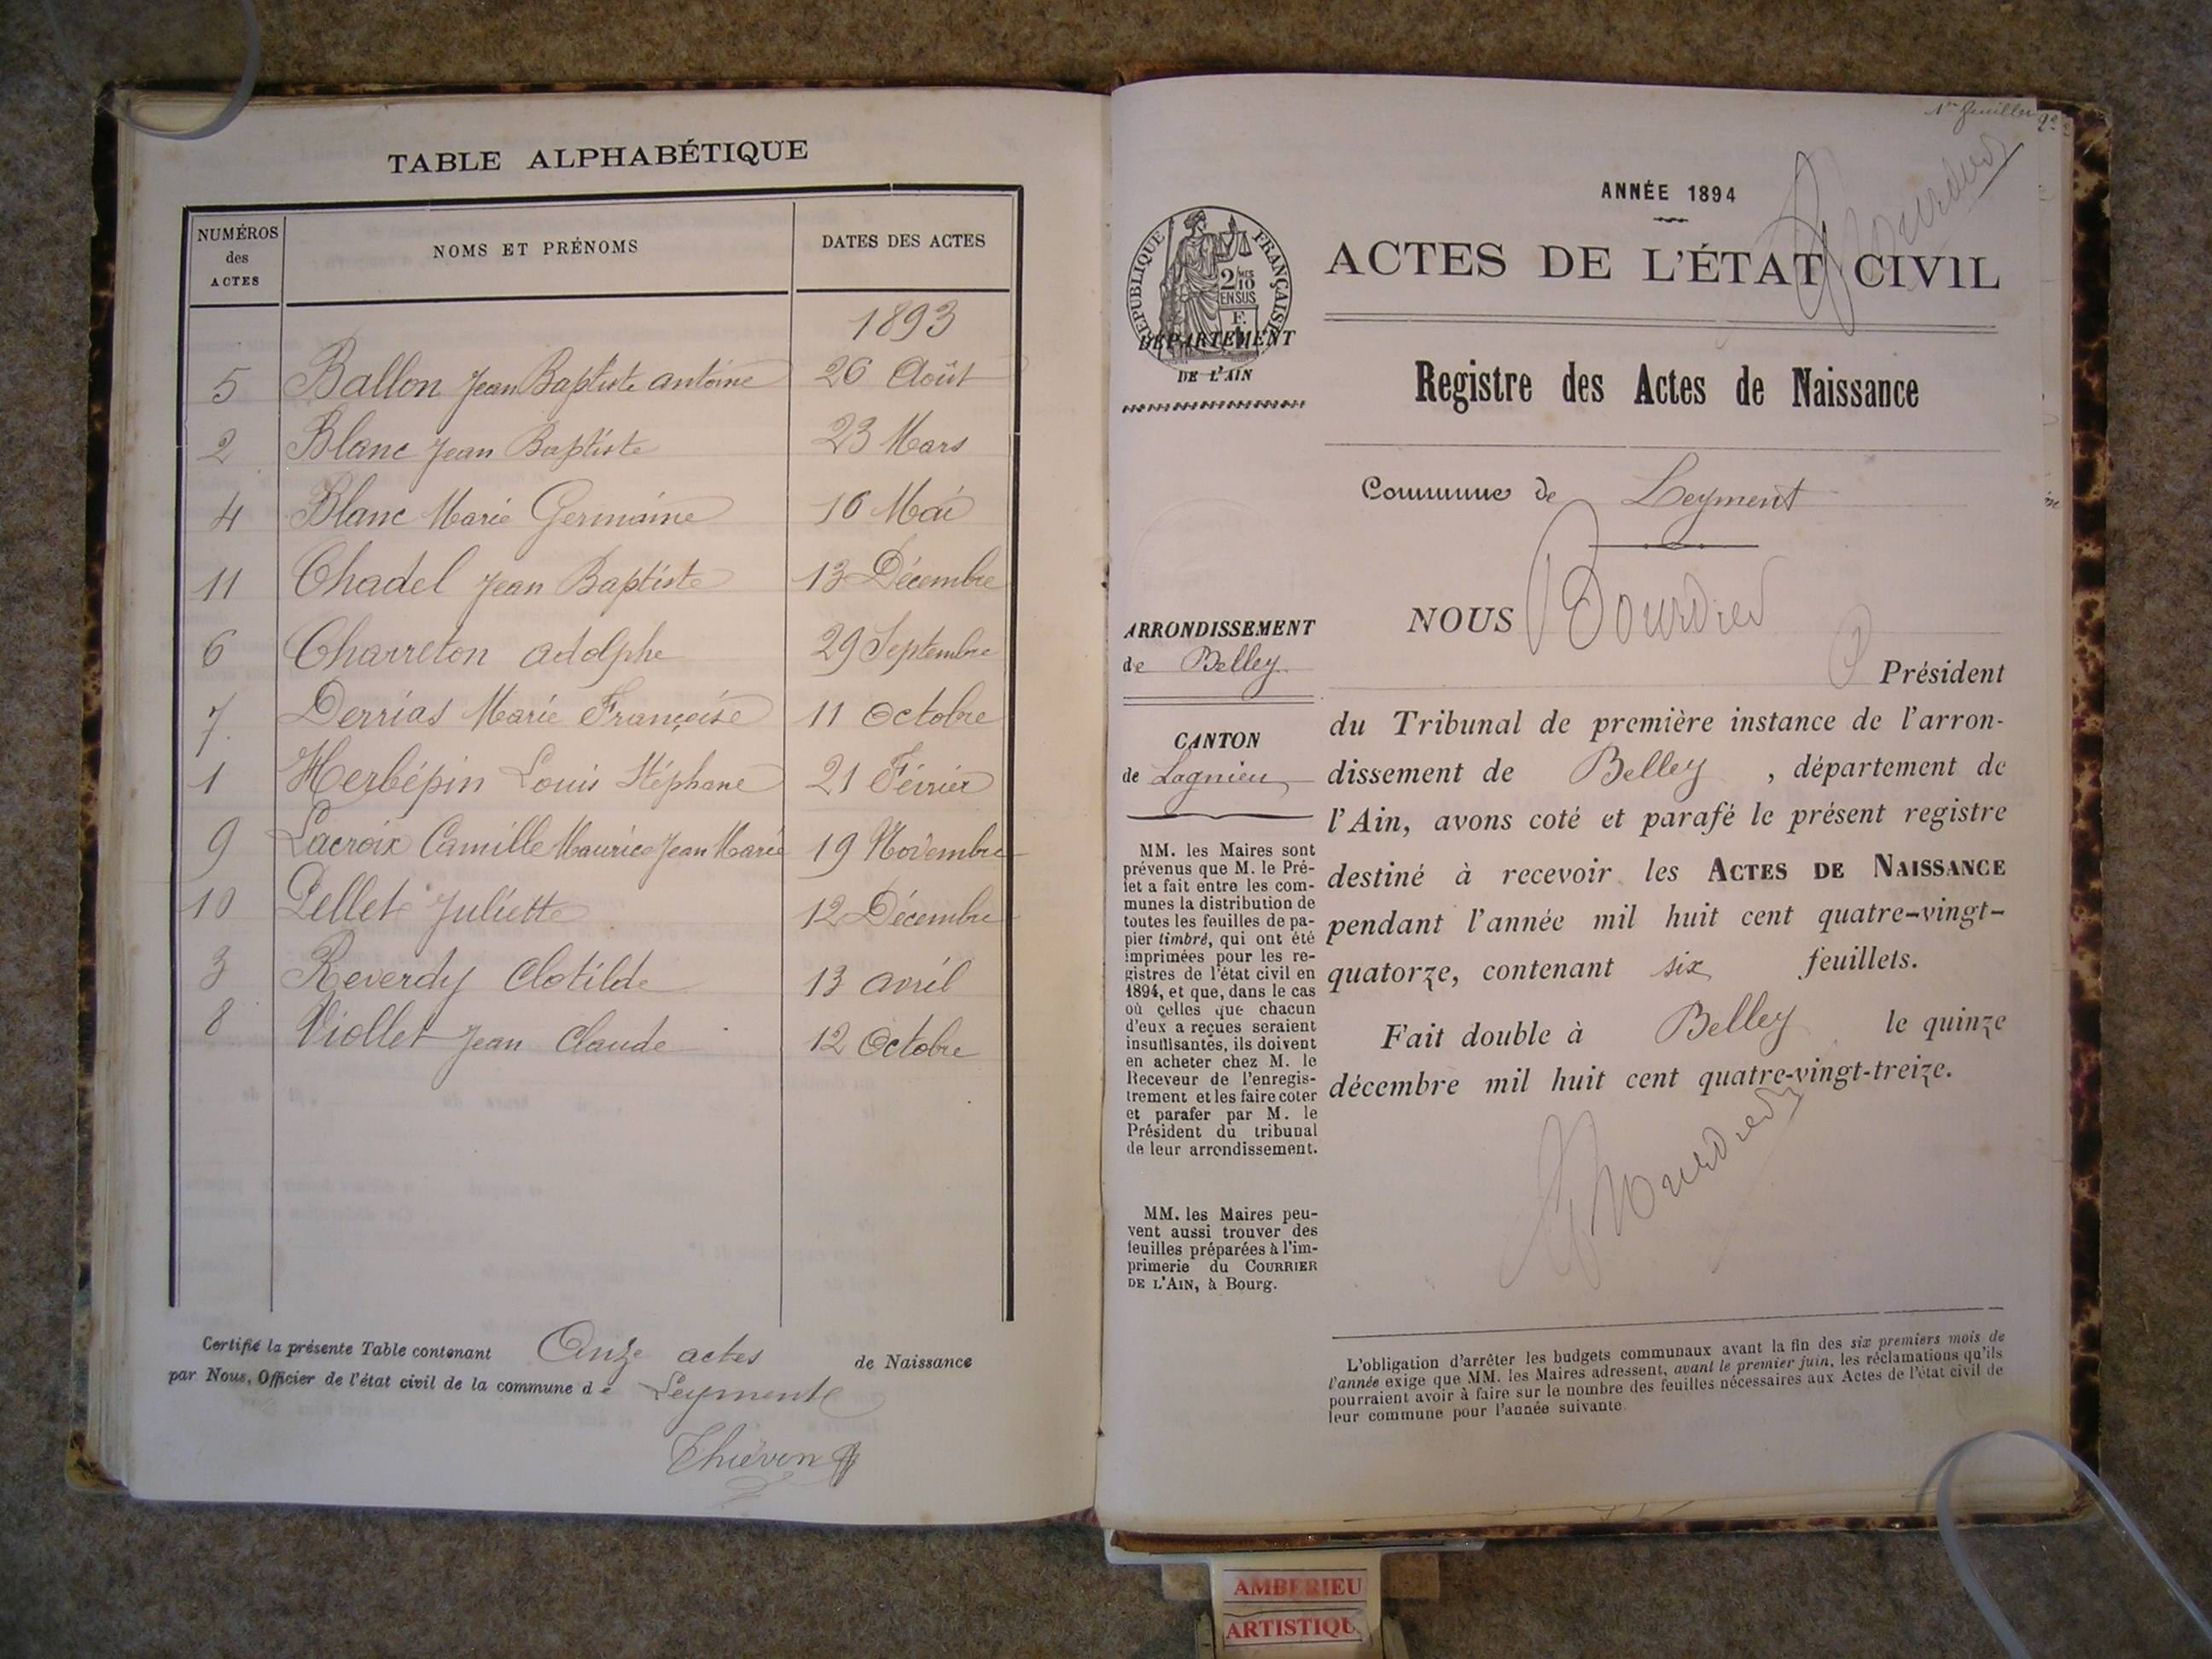 TABLE ALPHABÉTIQUE
NUMÉROS des ACTES
NOMS ET PRÉNOMS
DATES DES ACTES
1893
5 Ballon Jean Baptiste antoine 26 Août
2 Blanc Jean Baptiste 23 Mars
4 Blanc Marie Germaine 16 Mai
11 Chadel Jean Baptiste 13 Décembre
6 Charreton adolphe 29 Septembre
7 Derrias Marie Françoise 11 Octobre
1 Herbépin Louis Stéphane 21 Février
9 Lacroix Camille Maurice Jean Marie 19 Novembre
10 Pellet Juliette 12 Décembre
3 Reverdy Clotilde 13 avril
8 Viollet Jean Claude 12 Octobre
Certifié la présente Table contenant Onze actes de Naissance
par Nous, Officier de l'état civil de la commune de Leyment
1er feuillet
ANNÉE 1894
RÉPUBLIQUE FRANÇAISE
2/10
EN SUS
DÉPARTEMENT
DE L'AIN
ACTES DE L'ÉTAT CIVIL
Registre des Actes de Naissance
Commune de Leyment
ARRONDISSEMENT
de Belley
CANTON
de Lagnieu
MM. les Maires sont
prévenus que M. le Pré-
fet a fait entre les com-
munes la distribution de
toutes les feuilles de pa-
pier timbré, qui ont été
imprimées pour les re-
gistres de l'état civil en
1894, et que, dans le cas
où celles que chacun
d'eux a reçues seraient
insuffisantes, ils doivent
en acheter chez M. le
Receveur de l'enregis-
trement et les faire coter
et parafer par M. le
Président du tribunal
de leur arrondissement.
MM. les Maires peu-
vent aussi trouver des
feuilles préparées à l'im-
primerie du COURRIER
DE L'AIN, à Bourg.
NOUS Bourdier
Président
du Tribunal de première instance de l'arron-
dissement de Belley, département de
l'Ain, avons coté et parafé le présent registre
destiné à recevoir les ACTES DE NAISSANCE
pendant l'année mil huit cent quatre-vingt-
quatorze, contenant six feuillets.
Fait double à Belley le quinze
décembre mil huit cent quatre-vingt-treize.
L'obligation d'arrêter les budgets communaux avant la fin des six premiers mois de
l'année exige que MM. les Maires adressent, avant le premier juin, les réclamations qu'ils
pourraient avoir à faire sur le nombre des feuilles nécessaires aux Actes de l'état civil de
leur commune pour l'année suivante.
AMBERIEU
ARTISTIQU